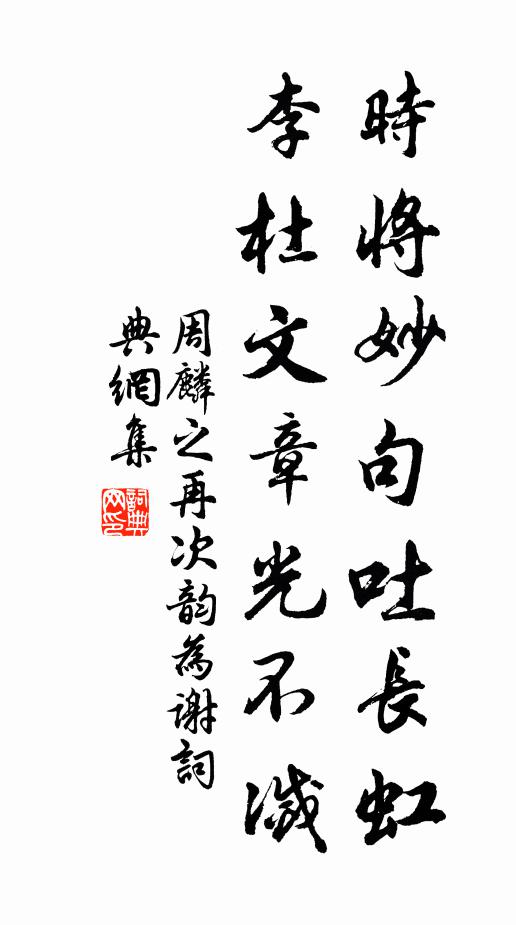 時將妙句吐長虹
李杜文章光不滅
周麟之再次韵為謝詞
典網集
詞典
网印